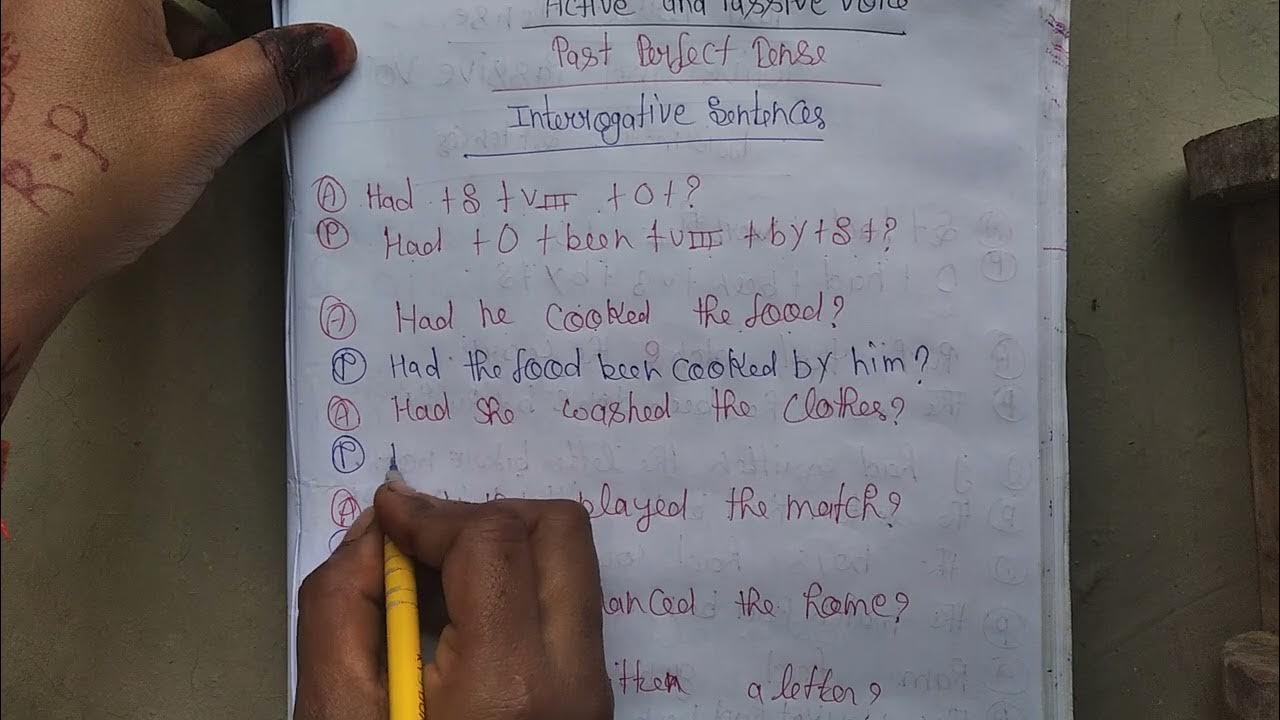 Active and Passive Voice
Past Perfect Tense
Interrogative Sentences
Ⓐ Had + S + VIII + O + ?
Ⓟ Had + O + been + VIII + by + S + ?
Ⓐ Had he cooked the food?
Ⓟ Had the food been cooked by him?
Ⓐ Had she washed the clothes?
Ⓟ
Ⓐ played the match?
the home?
a letter?
R.P